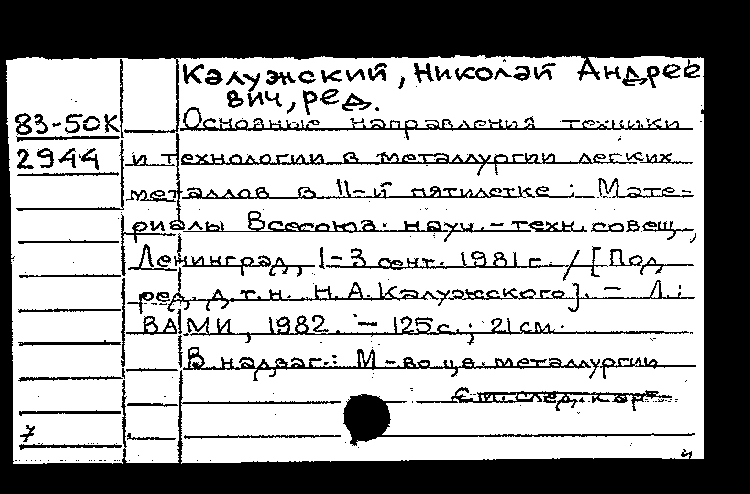 Калужский, Николай Андрее
вич, ред.
83-50К
Основные направления техники
2944
и технологии в металлургии легких
металлов в 11-й пятилетке : Мате-
риалы Всесоюз. науч.-техн. совещ.,
Ленинград, 1-3 сент. 1981 г. / [Под
ред. д.т.н. Н.А. Калужского]. - Л.:
ВАМИ, 1982. - 125 с.; 21 см.
В надзаг.: М-во цв. металлургии
См. след. карт
7